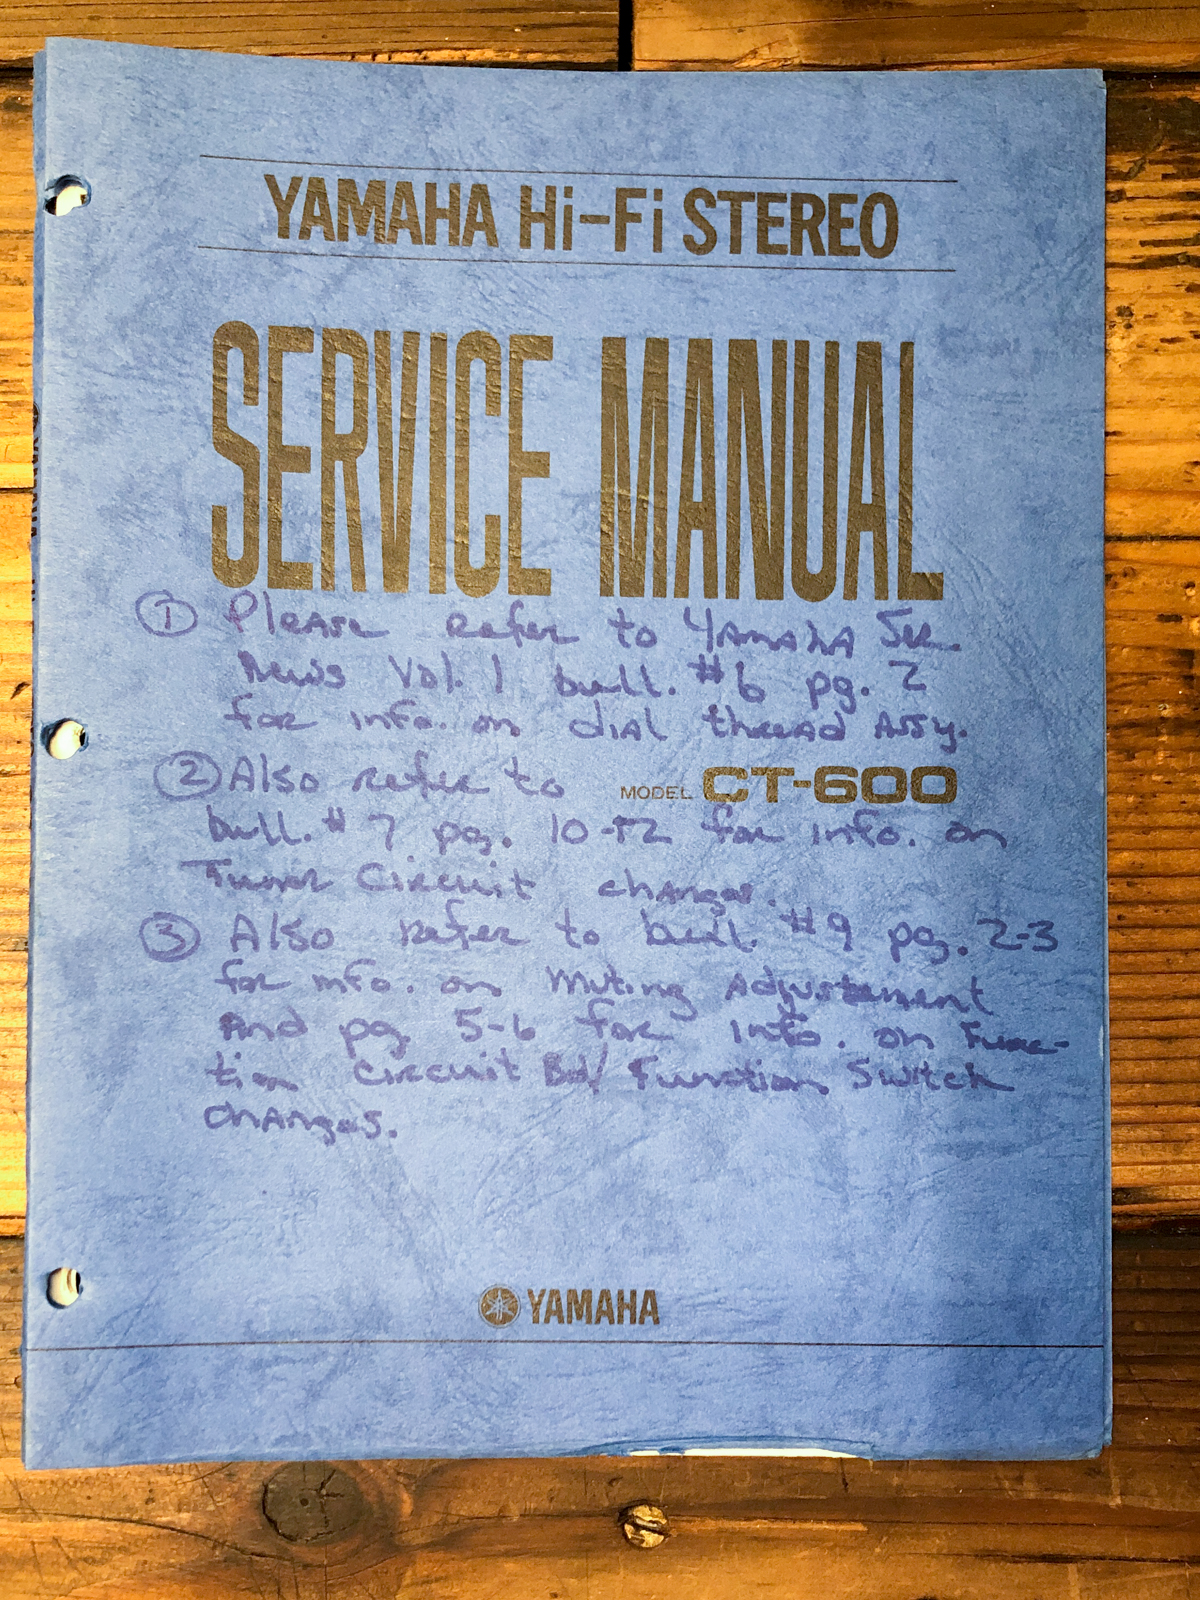 YAMAHA Hi-Fi STEREO
SERVICE MANUAL
① Please refer to Yamaha Ser.
News Vol. 1 bull. #6 pg. 2
for info. on dial thread Assy.
② Also refer to
MODEL CT-600
bull. #7 pg. 10-12 for info. on
Tuner Circuit changes.
③ Also refer to bull. #9 pg. 2-3
for info. on Muting Adjustement
And pg 5-6 for info. on Func-
tion Circuit Bd/Function Switch
changes.
YAMAHA